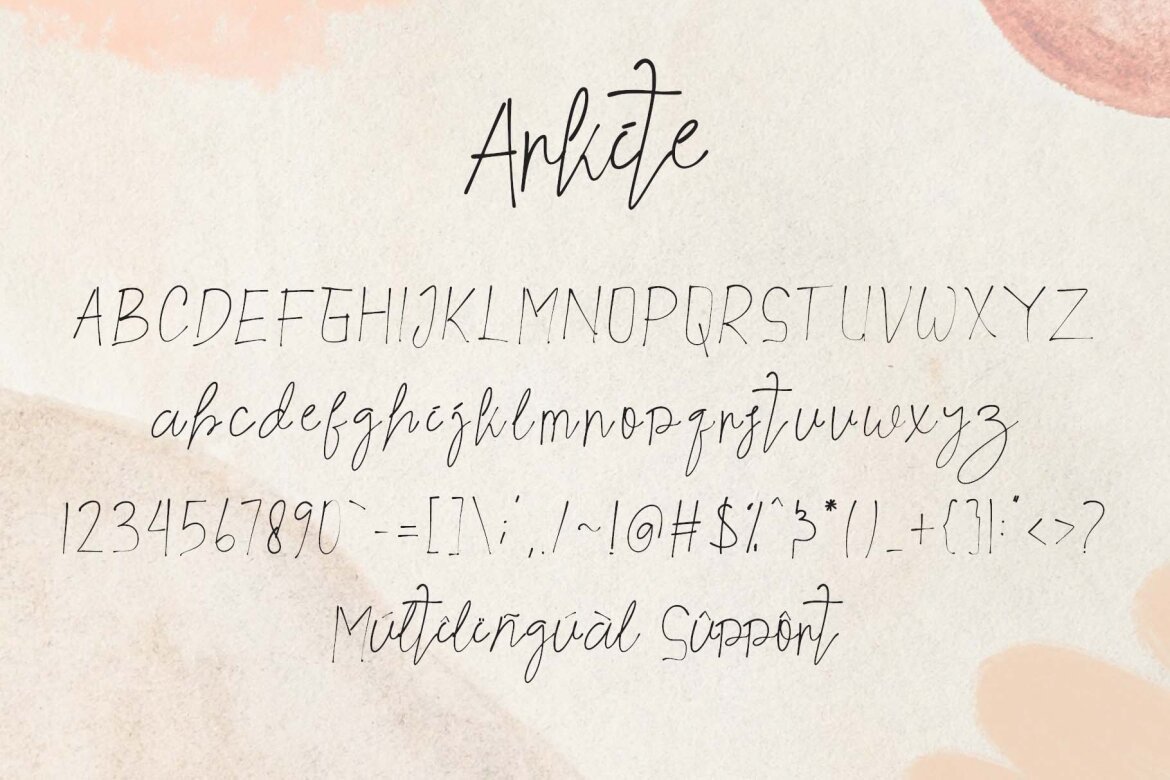 Ankite
ABCDEFGHIJKLMNOPQRSTUVWXYZ
abcdefghijklmnopqrstuvwxyz
1234567890`-=[]\;',./~!@#$%^&*()_+{}|:"<>?
Múltilïñgúàl Sûppôrt